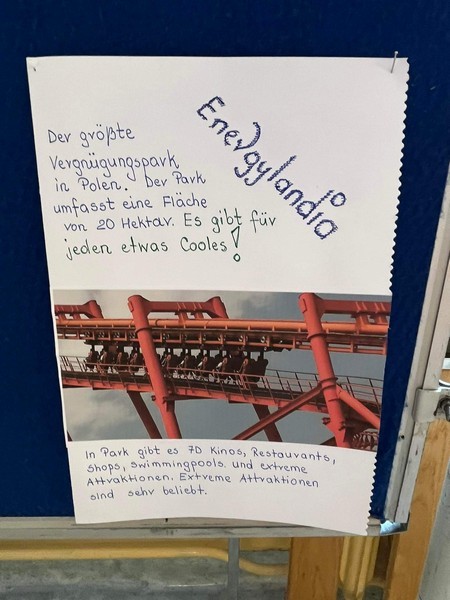 Energylandia
Der größte
Vergnügungspark
in Polen. Der Park
umfasst eine Fläche
von 20 Hektar. Es gibt für
jeden etwas Cooles!
In Park gibt es 7D Kinos, Restaurants,
Shops, Swimmingpools und extreme
Attraktionen. Extreme Attraktionen
sind sehr beliebt.